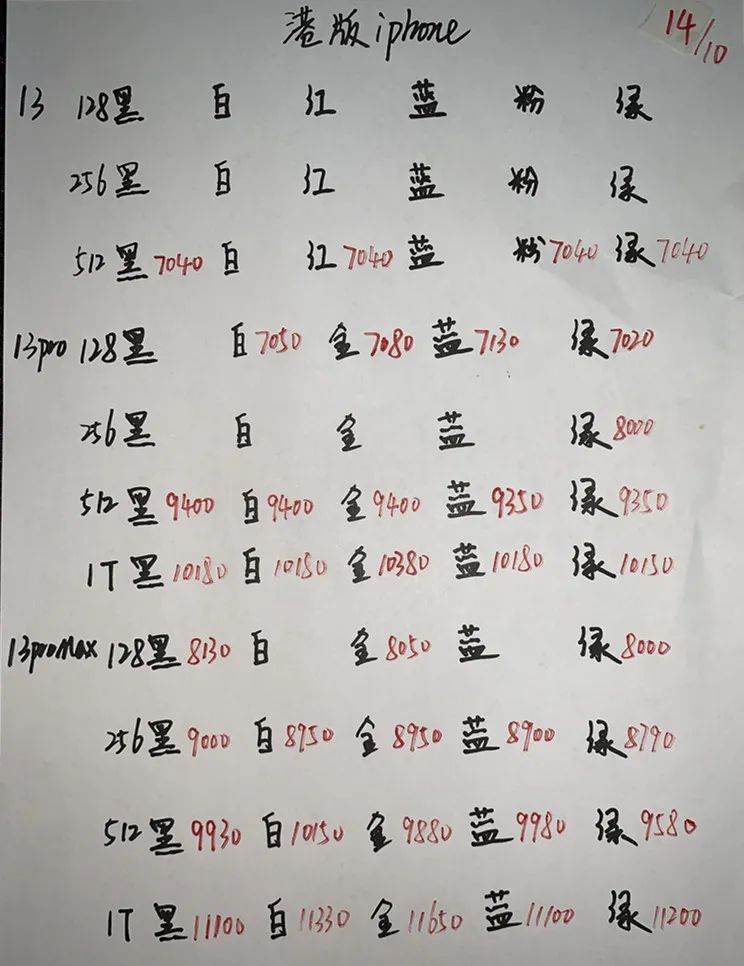 港版iphone 14/10
13 128黑 白 红 蓝 粉 绿
256黑 白 红 蓝 粉 绿
512黑7040 白 红7040 蓝 粉7040 绿7040
13pro 128黑 白7050 金7080 蓝7130 绿7020
256黑 白 金 蓝 绿8000
512黑9400 白9400 金9400 蓝9350 绿9350
1T黑10180 白10180 金10380 蓝10180 绿10150
13proMax 128黑8130 白 金8050 蓝 绿8000
256黑9000 白8950 金8950 蓝8900 绿8790
512黑9930 白10150 金9880 蓝9980 绿9580
1T黑11100 白11330 金11650 蓝11100 绿11200